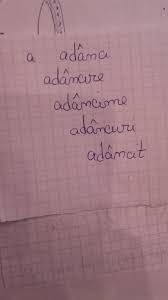 a adânci
adâncire
adâncime
adâncuri
adâncit